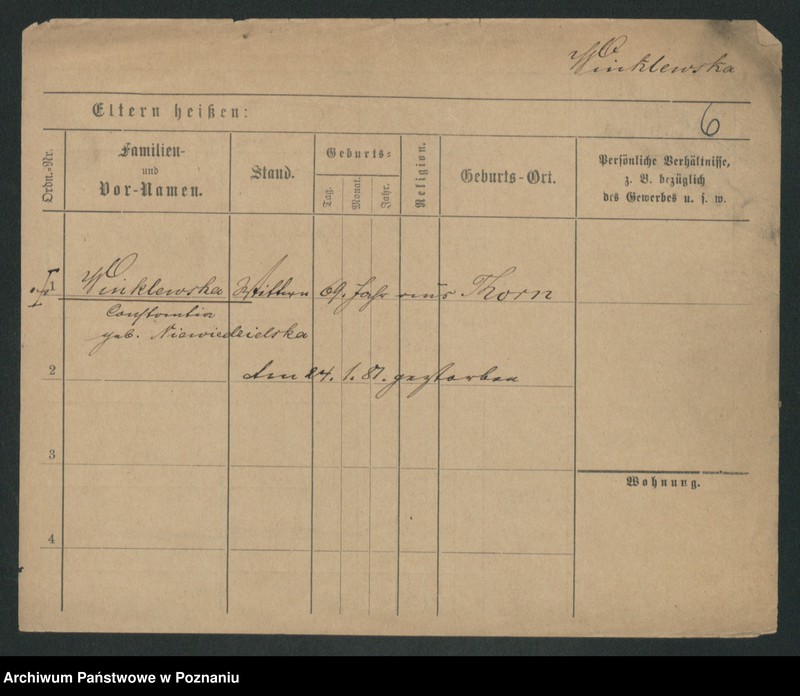 Winklewska
Eltern heißen:
6
Ordn.-Nr.
Familien-
und
Vor-Namen.
Stand.
Geburts-
Tag.
Monat.
Jahr.
Religion.
Geburts-Ort.
Persönliche Verhältnisse,
z. B. bezüglich
des Gewerbes u. s. w.
1 Winklewska Wittwe 69. Jahr aus Thorn
Constantia
geb. Niewiedzielska
2 Am 24. 1. 81. gestorben
3
Wohnung.
4
Archiwum Państwowe w Poznaniu